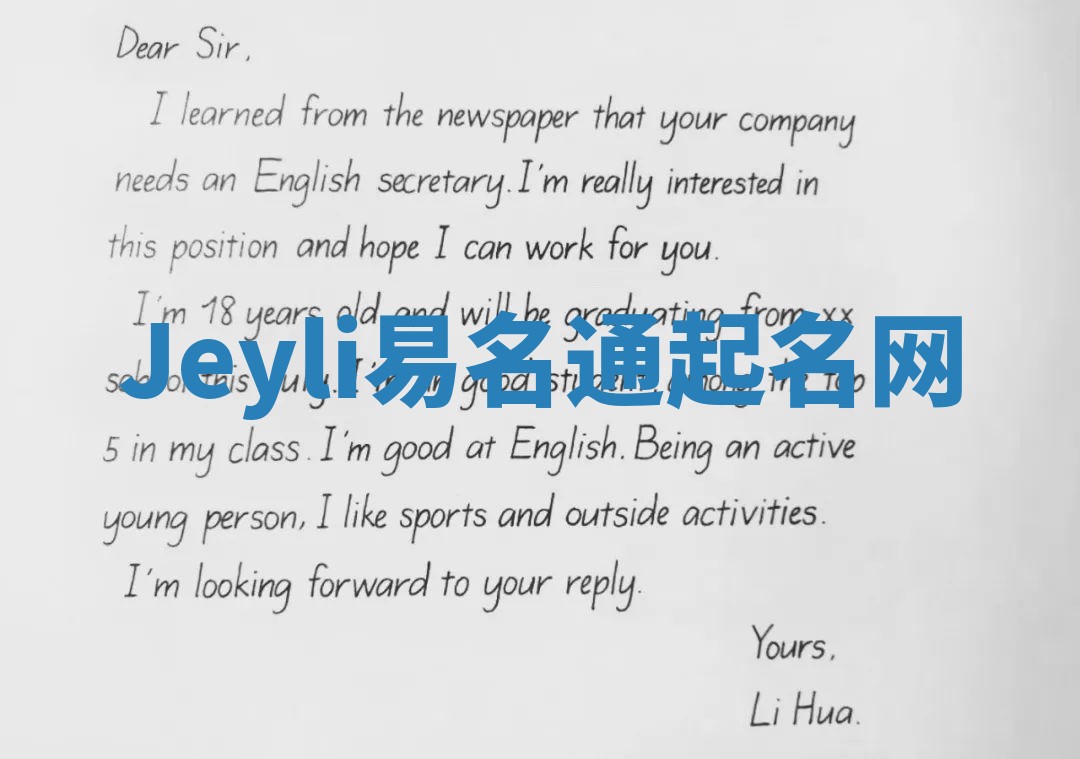 Dear Sir,
I learned from the newspaper that your company
needs an English secretary. I'm really interested in
this position and hope I can work for you.
I'm 18 years old and will be graduating from xx
Jeyli易名通起名网
this July. I'm good student, among the top
5 in my class. I'm good at English. Being an active
young person, I like sports and outside activities.
I'm looking forward to your reply.
Yours,
Li Hua.